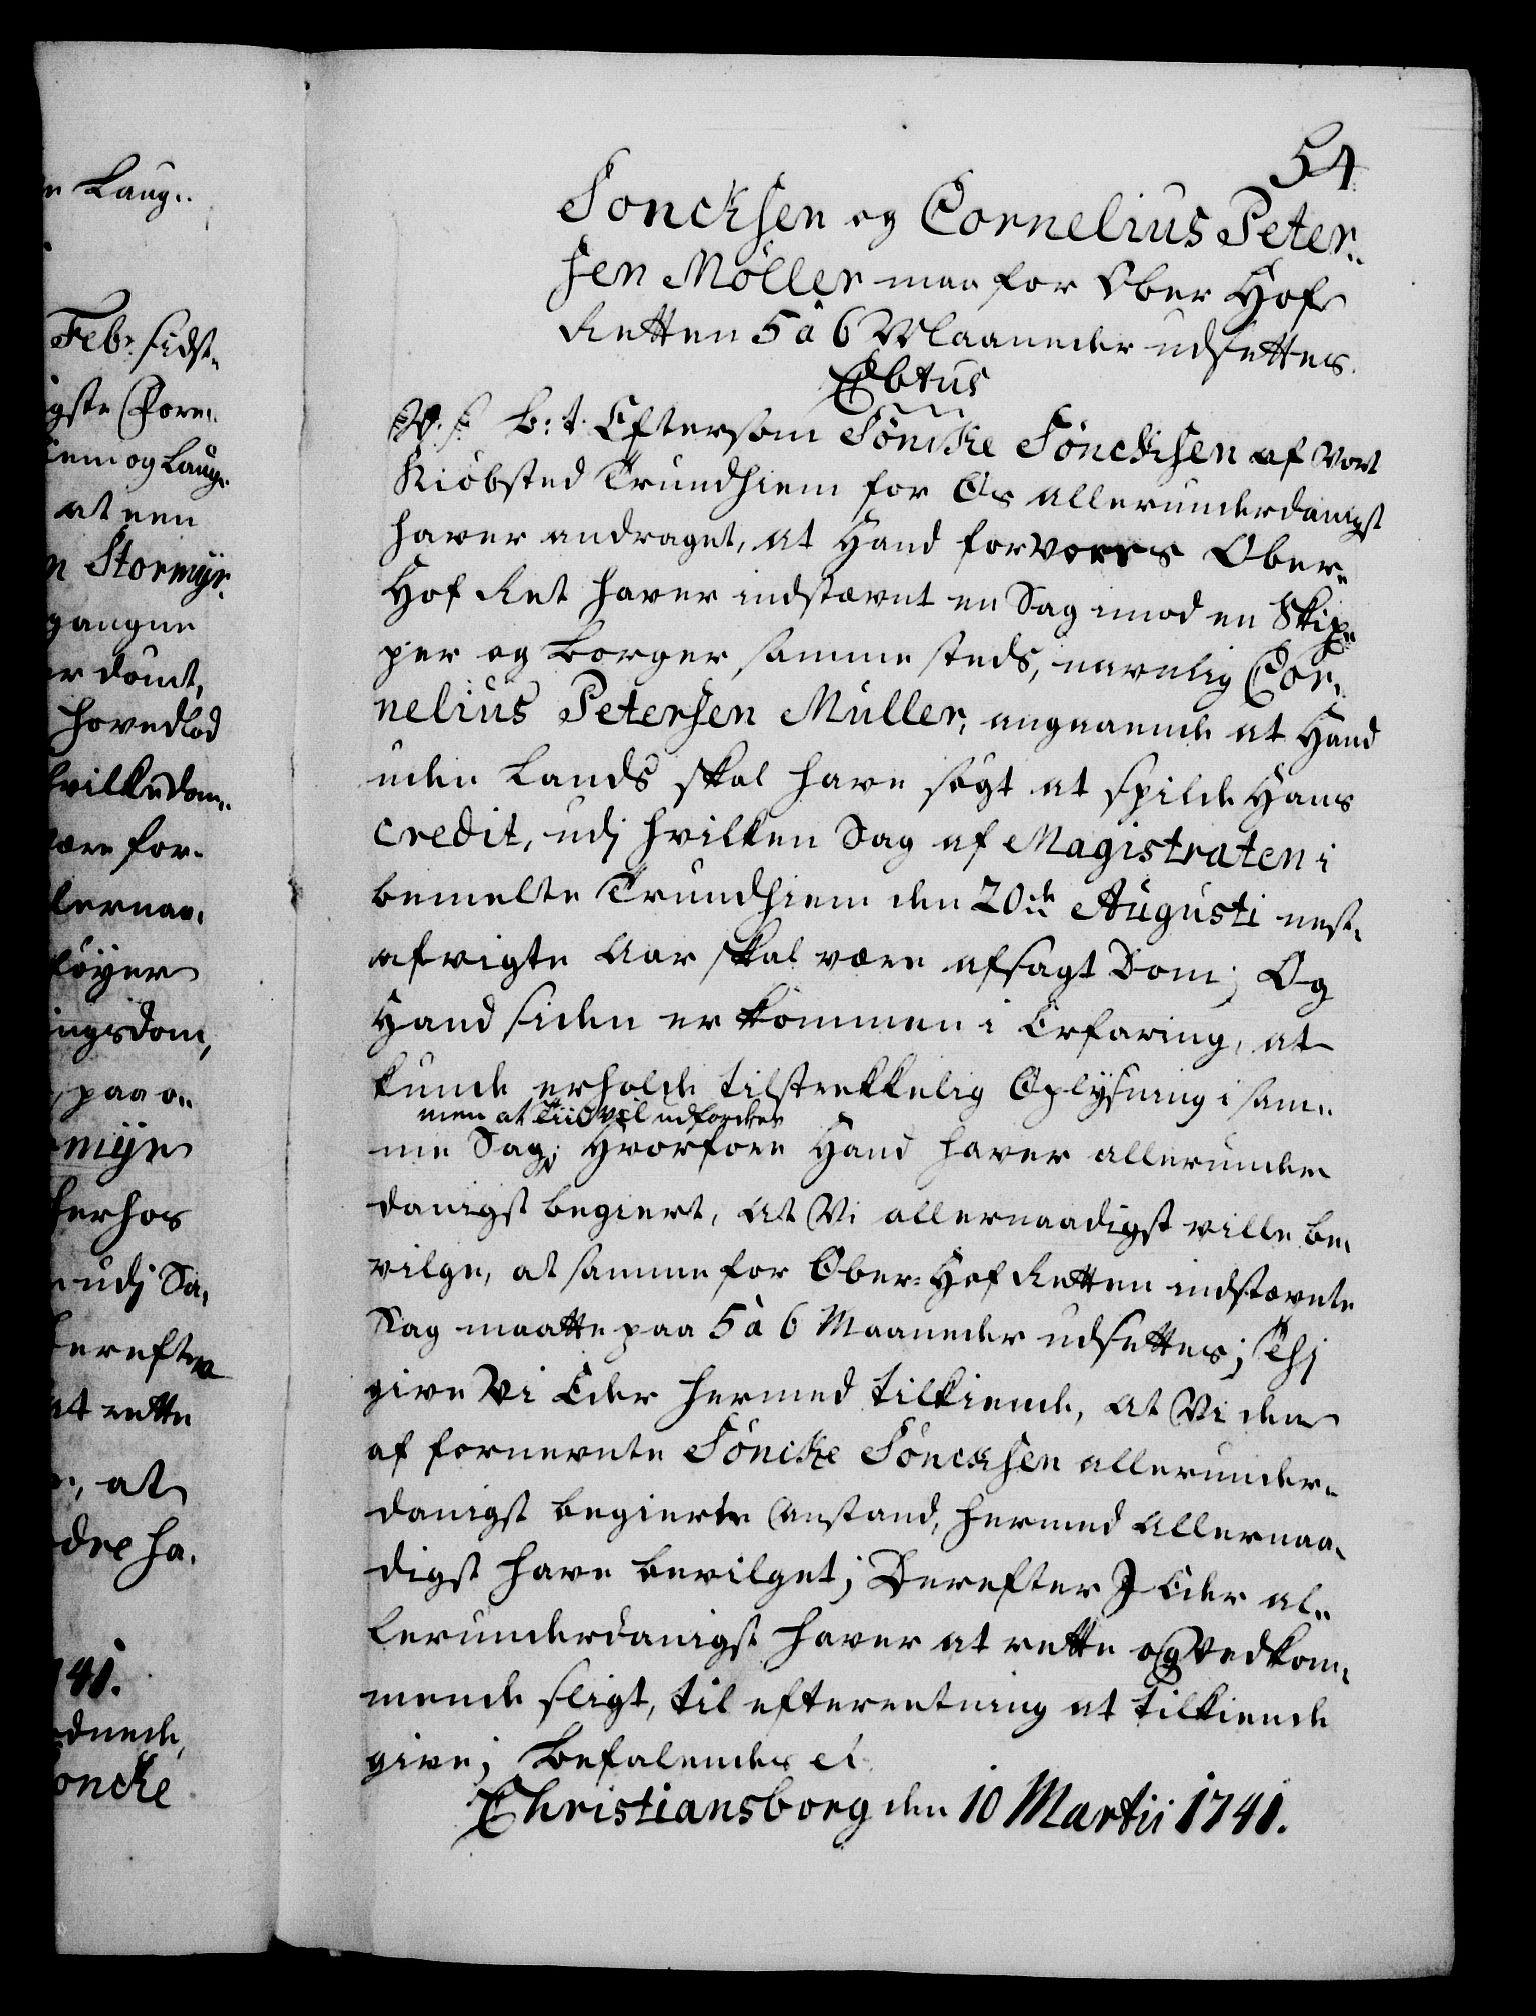 e Laug..
Febr: sidst-
igste Fore..
iem og Laug-
at een
n Stormyr.
gangne
er dömt,
hovedlod
hvilken Dom..
være for-
lernaa.
löyer
ingsdom,
paa o..
myr
herhos
udj Sa,
derefter
at rette
, at
dre ha.
1741.
dnede,
öncke
54
Söncksen og Cornelius Peter..
sen Möller maa for Ober Hof
Retten 5 à 6 Maaneder udsettes.
Cbtus
W. S. B: t. Eftersom Söncke Söncksen af Vort
Kiöbsted Trundhiem for Os allerunderdanigst
haver andraget, at Hand for Vores Ober-
Hof Ret haver indstævnt en Sag imod en Skip-
per og Borger sammesteds, navnlig Cor-
nelius Petersen Müller, angaaende at Hand
uden Lands skal have sögt at spilde Hans
Credit, udj hvilken Sag af Magistraten i
bemelte Trundhiem den 20de Augusti nest-
afvigte Aar skal være afsagt Dom; Og
Hand siden er kommen i Erfaring, at
kunde erholde tilstrekkelig Oplysning i sam-
men at Tiid vil udfordres
me Sag; Hvorfore Hand haver allerunder
danigst begiert, at Vi allernaadigst ville be-
vilge, at samme for Ober-Hof Retten indstævnte
Sag maatte paa 5 à 6 Maaneder udsettes; Thj
give Vi Eder hermed tilkiende, at Vi den
af fornevnte Söncke Söncksen allerunder-
danigst begierte Anstand, hermed Allernaa-
digst have bevilget; Derefter I Eder al-
lerunderdanigst haver at rette og Vedkom-
mende sligt, til efterretning at tilkiende
give; Befalendes et
Christiansborg den 10 Martii 1741.